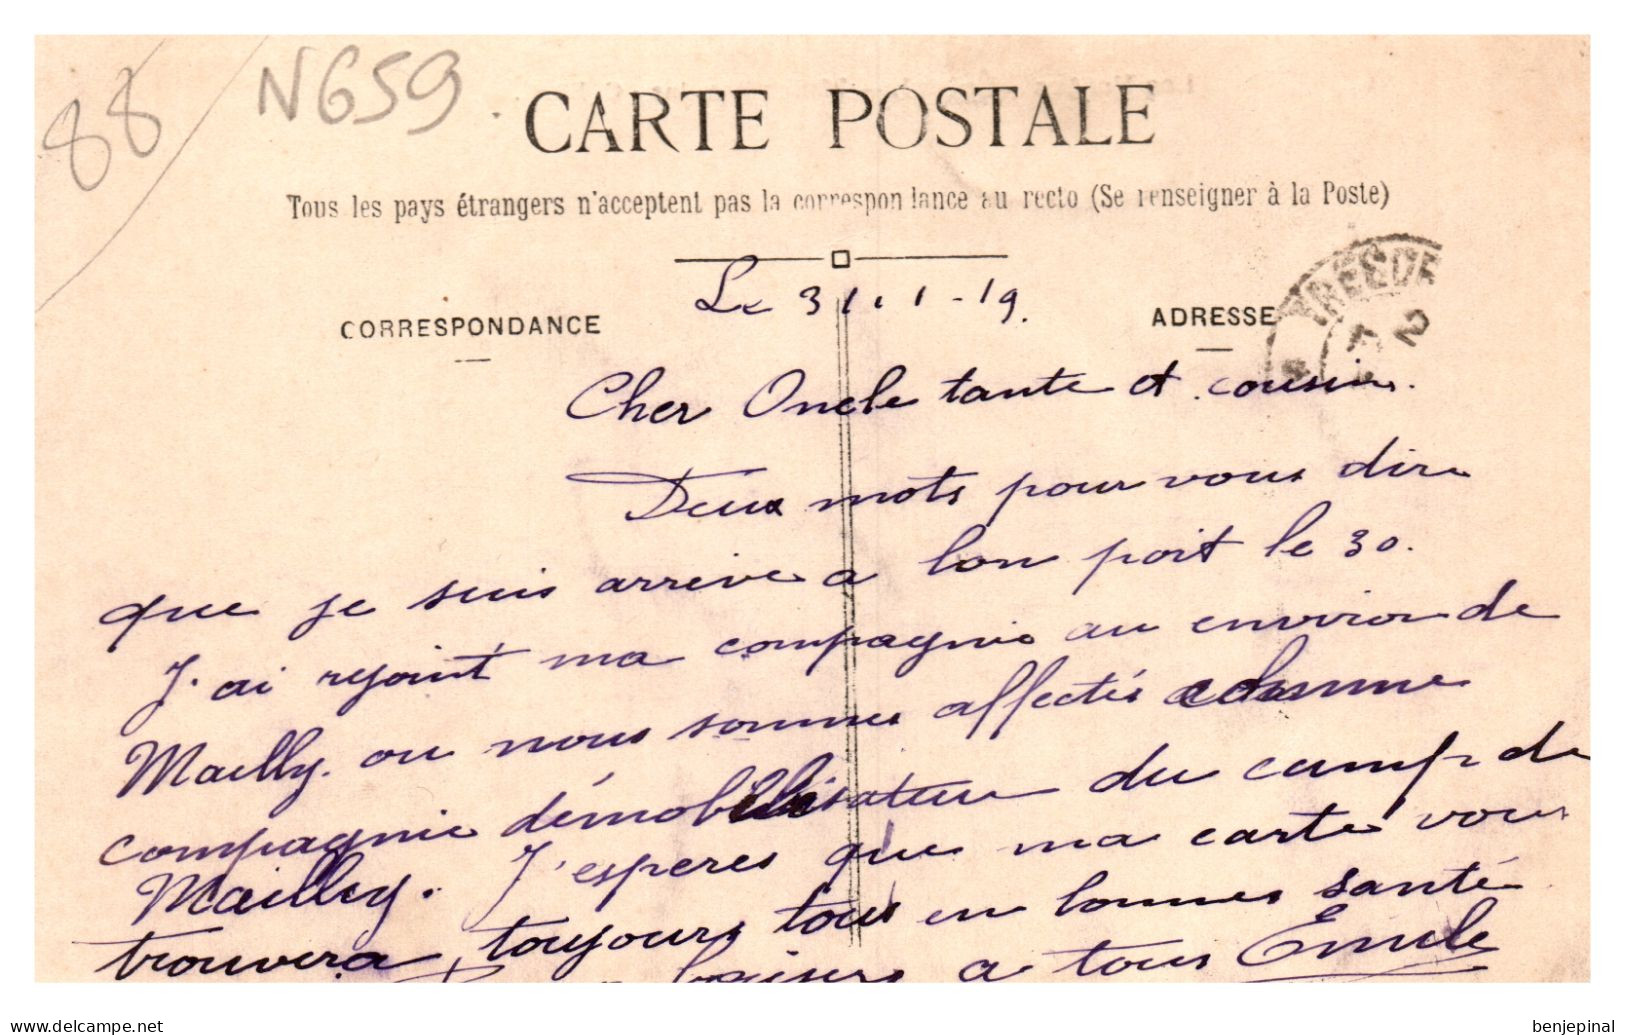 88
N659
CARTE POSTALE
Tous les pays étrangers n'acceptent pas la correspondance au recto (Se renseigner à la Poste)
Le 31.1-19.
CORRESPONDANCE
ADRESSE
2
Cher Oncle tante et cousins.
Deux mots pour vous dire
que je suis arrive a bon port le 30.
J'ai rejoint ma compagnie au environ de
Mailly. ou nous sommes affectés comme
compagnie démobilisateur du camp de
Mailly. J'esperes que ma carte vous
trouvera toujours tous en bonnes santé
baisers a tous Emile
www.delcampe.net
benjepinal